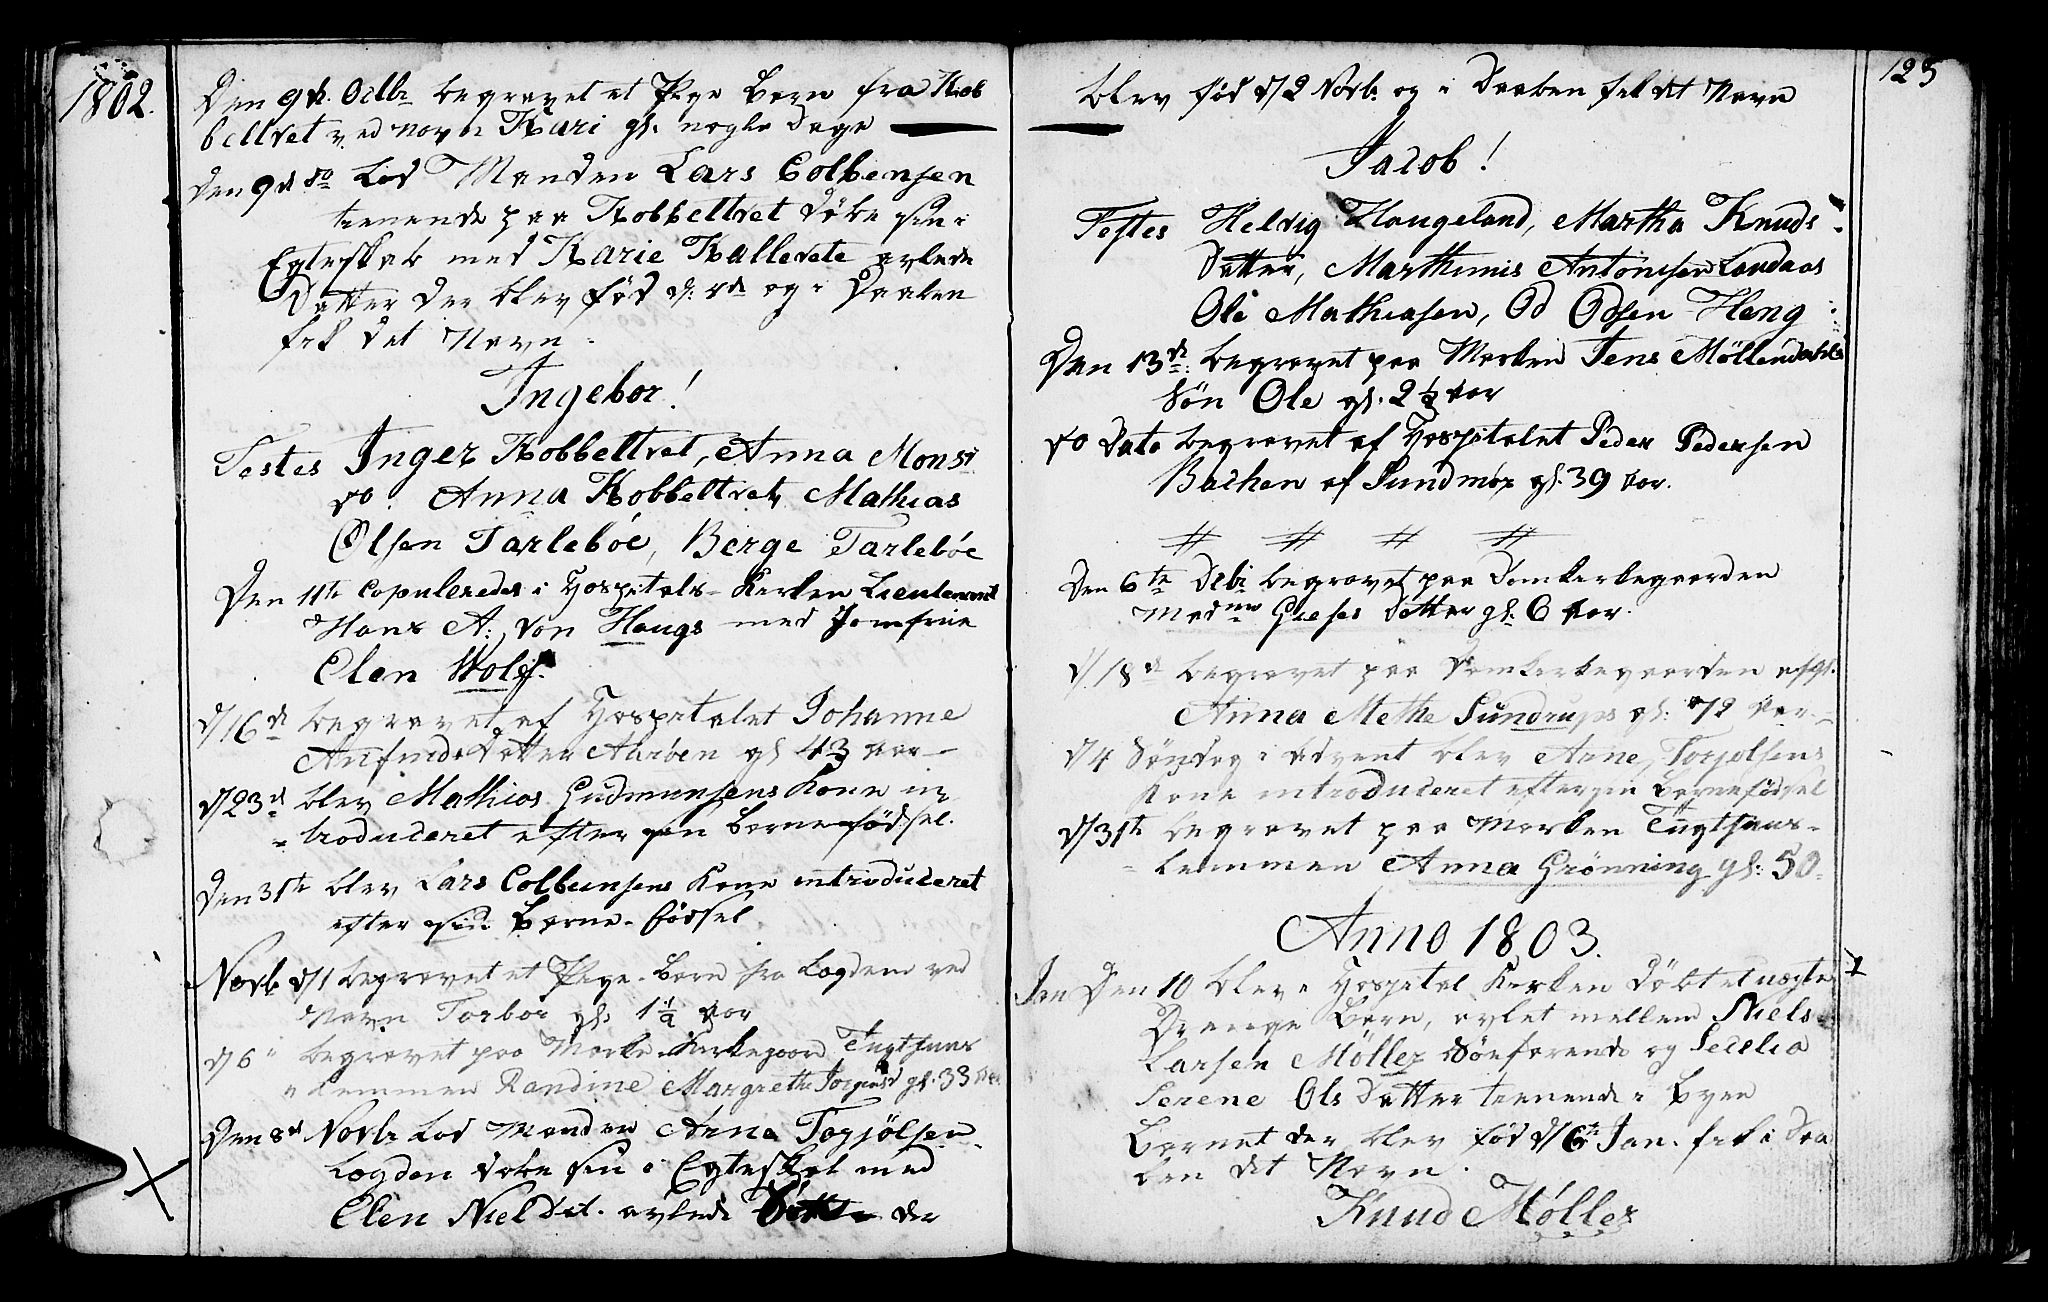 1802.
Den 9de Octbr begravet et Pige Barn fra Kob
beltvet ved navn Kari gl. nogle Dage
den 9de do Lod Manden Lars Colbensen
tienende paa Kobbeltvet döbe sin i
Egteskab med Karie Kallevete avlede
Datter der blev född d: 4de og i Daaben
fik det Navn
Ingebor!
Testes Inger Kobbeltvet, Anna Monsd
do. Anna Kobbeltvet, Mathias
Olsen Tarleböe, Berge Tarleböe
Den 11te Copuleredes i Hospitals-Kirken Lieutenant
Hans A: von Haugs med Jomfrue
Elen Wolf.
d/16de begravet af Hospitalet Johanne
Anfinds Datter gl 43 Aar
d/23de blev Mathias Gudmunsens Kone in
troduceret efter sin Barnefödsel.
Den 31te blev Lars Colbensens Kone introduceret
efter sin Barne-födsel
Novbr d/1 begravet et Pige-Barn fra Logden ved
Navn Torbor gl. 1 1/2 Aar
d/6 begravet paa Marke-Kirkegaard Tugthuus
lemmen Randine Margrethe Jörgensd gl. 33 Aar.
Den 8de Novbr Lod Manden Arne Togjölsen
Logden döbe sin i Egteskab med
Elen Nielsdat. avlede der
125
blev född d/2 Novbr og i Daaben fik det Navn
Jacob!
Testes Helvig Haugeland, Martha Knuds
Datter, Marthinus Antonisen Landaas
Ole Mathiasen, Od Odsen Heng
Den 13de begravet paa Marken Jens Möllendahls
Sön Ole gl. 2 1/2 Aar
do Dato begravet af Hospitalet Peder Pedersen
Bachen af Sundmör gl. 39 Aar.
# # # #
Den 6te Dcbr begravet paa Domkirkegaarden
Mad Gieses Datter gl: 6 Aar.
d/18de begravet paa Domkirkegaarden
Anna Methe Sundrups gl: 72 Aar.
d/4 Söndag i Advent blev Arne Torjölsens
Kone introduceret efter sin Barnefödsel
d/31te begravet paa Marken Tugthuus-
Lemmen Anna Grönning gl: 50
Anno 1803.
Jan Den 10 blev i Hospital Kirken Döbt et uægte 1
Drenge Barn, avlet mellem Niels
Larsen Möller Söefarende og Secelia
Serene Ols Datter tienende i Byen
Barnet der blev föd d/6te Jan. fik i Daa
ben det Navn.
Knud Möller